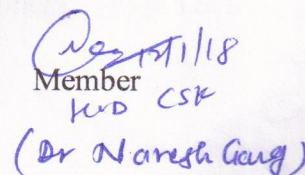 12/1/18
Member
HOD CSK
(Dr Naresh Garg)